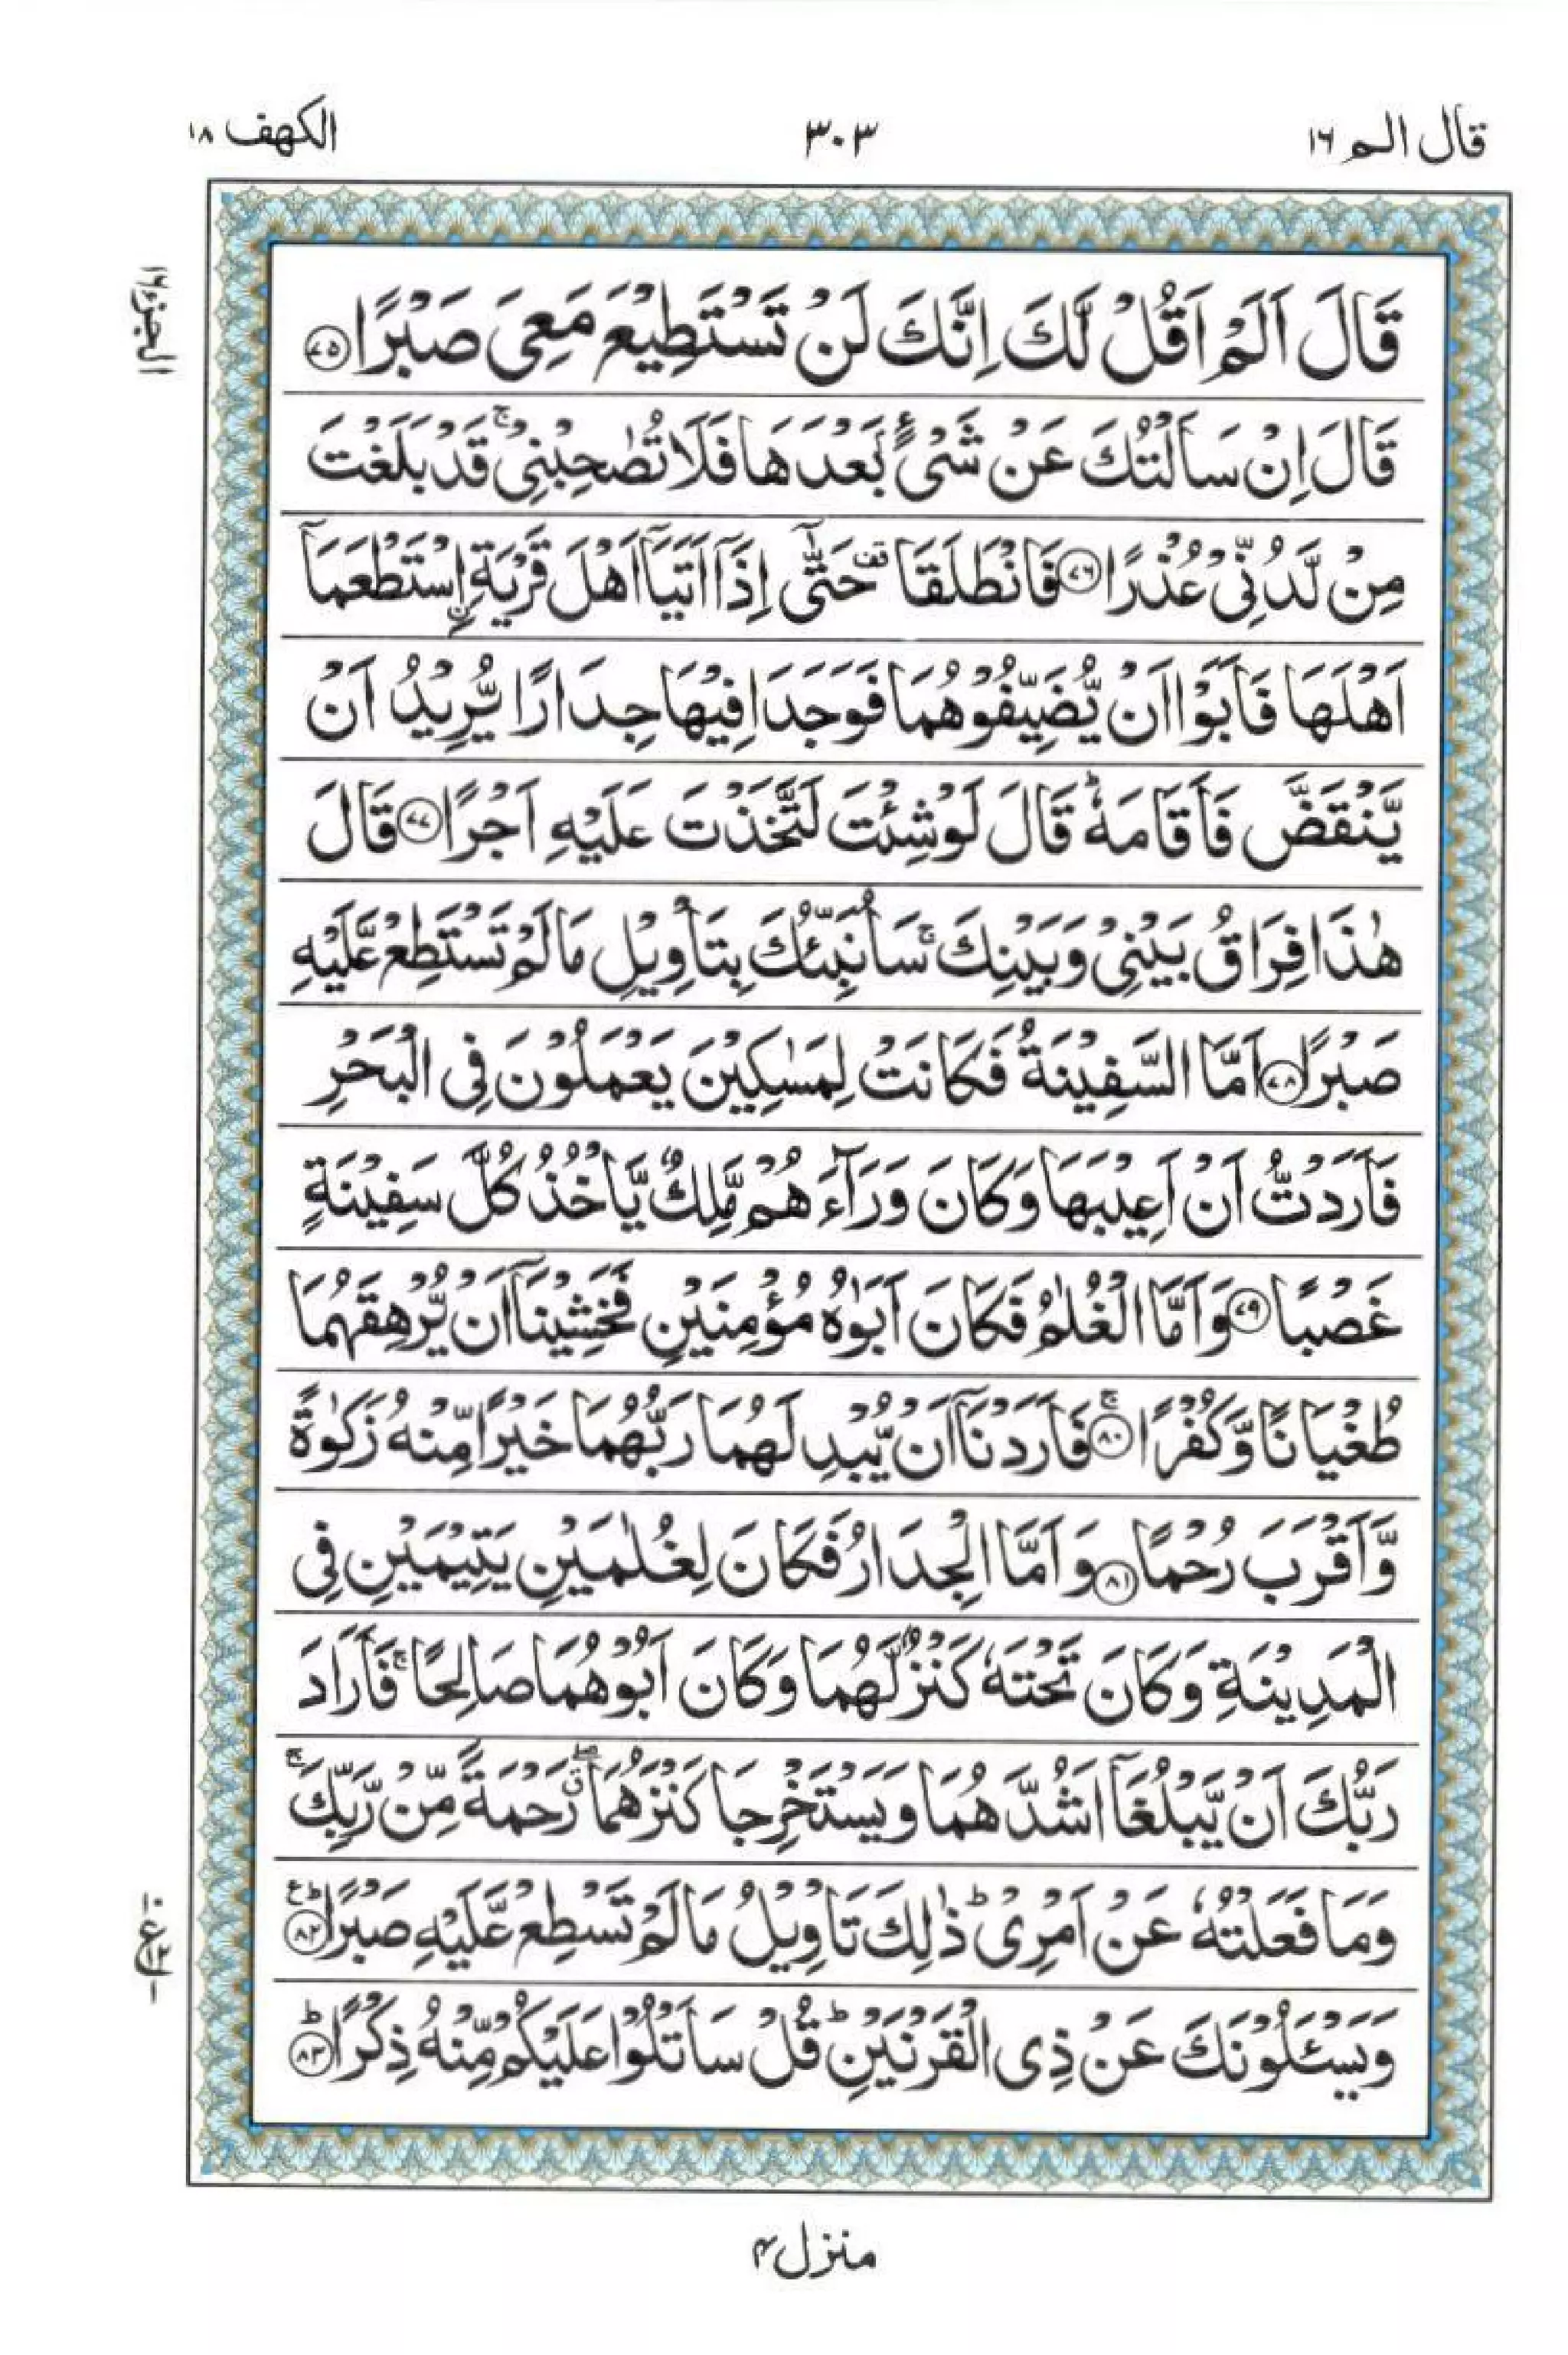 قال الم ١٦
٣٠٣
الكهف ١٨
الجزء ١٦
قَالَ اَلَمْ اَقُلْ لَّكَ اِنَّكَ لَنْ تَسْتَطِيْعَ مَعِىَ صَبْرًا ﴿٧٥﴾
قَالَ اِنْ سَاَلْتُكَ عَنْ شَىْءٍۭ بَعْدَهَا فَلَا تُصٰحِبْنِىْ ۚ قَدْ بَلَغْتَ
مِنْ لَّدُنِّىْ عُذْرًا ﴿٧٦﴾ فَانْطَلَقَا ۥقف حَتّٰٓى اِذَاۤ اَتَيَاۤ اَهْلَ قَرْيَةِ ۨاسْتَطْعَمَاۤ
اَهْلَهَا فَاَبَوْا اَنْ يُّضَيِّفُوْهُمَا فَوَجَدَا فِيْهَا جِدَارًا يُّرِيْدُ اَنْ
يَّنْقَضَّ فَاَقَامَهٗ ؕ قَالَ لَوْ شِئْتَ لَتَّخَذْتَ عَلَيْهِ اَجْرًا ﴿٧٧﴾ قَالَ
هٰذَا فِرَاقُ بَيْنِىْ وَبَيْنِكَ ۚ سَاُنَبِّئُكَ بِتَاْوِيْلِ مَا لَمْ تَسْتَطِعْ عَّلَيْهِ
صَبْرًا ﴿٧٨﴾ اَمَّا السَّفِيْنَةُ فَكَانَتْ لِمَسٰكِيْنَ يَعْمَلُوْنَ فِى الْبَحْرِ
فَاَرَدْتُّ اَنْ اَعِيْبَهَا وَكَانَ وَرَآءَهُمْ مَّلِكٌ يَّاْخُذُ كُلَّ سَفِيْنَةٍ
غَصْبًا ﴿٧٩﴾ وَاَمَّا الْغُلٰمُ فَكَانَ اَبَوٰهُ مُؤْمِنَيْنِ فَخَشِيْنَاۤ اَنْ يُّرْهِقَهُمَا
طُغْيَانًا وَّكُفْرًا ۚ ﴿٨٠﴾ فَاَرَدْنَاۤ اَنْ يُّبْدِلَهُمَا رَبُّهُمَا خَيْرًا مِّنْهُ زَكٰوةً
وَّاَقْرَبَ رُحْمًا ﴿٨١﴾ وَاَمَّا الْجِدَارُ فَكَانَ لِغُلٰمَيْنِ يَتِيْمَيْنِ فِى
الْمَدِيْنَةِ وَكَانَ تَحْتَهٗ كَنْزٌ لَّهُمَا وَكَانَ اَبُوْهُمَا صَالِحًا ۚ فَاَرَادَ
رَبُّكَ اَنْ يَّبْلُغَاۤ اَشُدَّهُمَا وَيَسْتَخْرِجَا كَنْزَهُمَا ۖ رَحْمَةً مِّنْ رَّبِّكَ ۚ
وَمَا فَعَلْتُهٗ عَنْ اَمْرِىْ ؕ ذٰلِكَ تَاْوِيْلُ مَا لَمْ تَسْطِعْ عَّلَيْهِ صَبْرًا ؕ ﴿٨٢﴾
وَيَسْـَٔلُوْنَكَ عَنْ ذِى الْقَرْنَيْنِ ؕ قُلْ سَاَتْلُوْا عَلَيْكُمْ مِّنْهُ ذِكْرًا ؕ ﴿٨٣﴾
منزل ٤